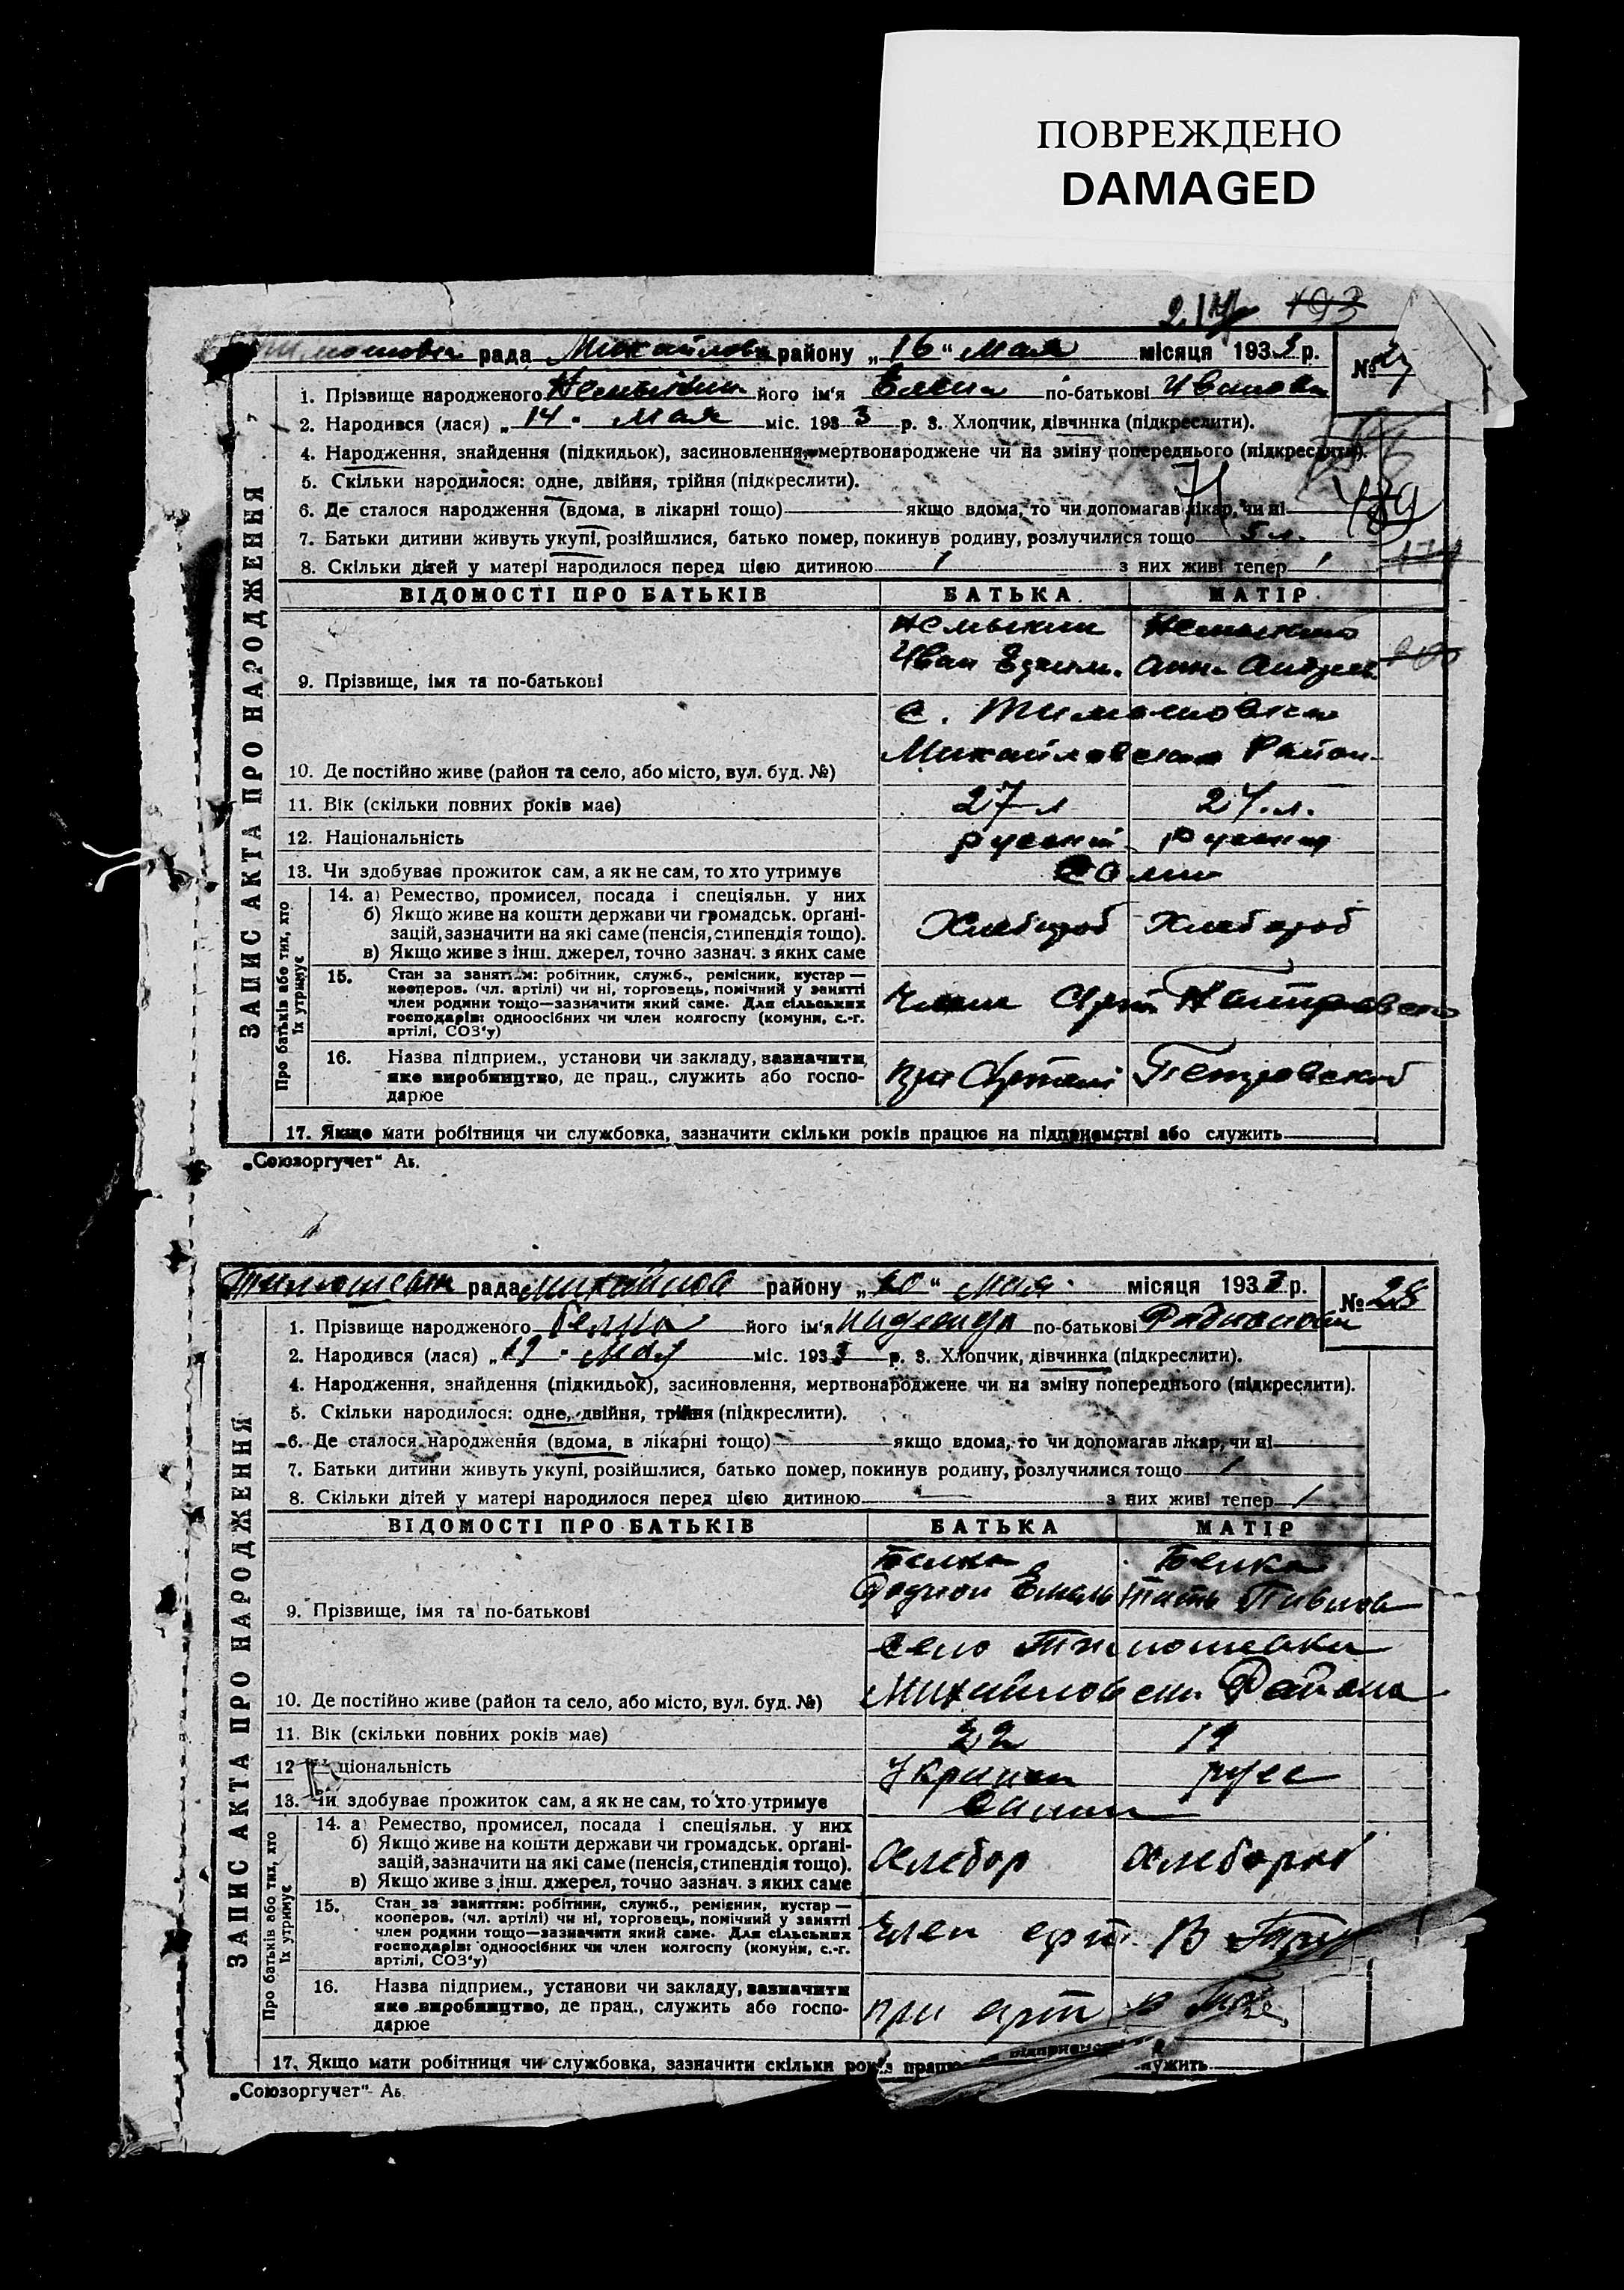 ПОВРЕЖДЕНО
DAMAGED
193
рада района району „16“ Мая місяця 1933 р. №
1. Прізвище народженого його ім'я Елена по-батькові Иванова
2. Народився (лася) „14 " Мая міс. 1933 р. 3. Хлопчик, дівчинка (підкреслити).
4. Народження, знайдення (підкидьок), засиновлення, мертвонароджене чи на зміну попереднього (підкреслити).
5. Скільки народилося: одне, двійня, трійня (підкреслити).
6. Де сталося народження (вдома, в лікарні тощо) якщо вдома, то чи допомагав лікар, чи ні
7. Батьки дитини живуть укупі, розійшлися, батько помер, покинув родину, розлучилися тощо 5 л.
8. Скільки дітей у матері народилося перед цією дитиною 1 з них живі тепер 1
ЗАПИС АКТА ПРО НАРОДЖЕННЯ
ВІДОМОСТІ ПРО БАТЬКІВ БАТЬКА МАТІР
Немыкин
Иван Анна
9. Прізвище, імя та по-батькові
с. Тимошовка
Михайловского Район
10. Де постійно живе (район та село, або місто, вул. буд. №)
11. Вік (скільки повних років має) 27 л 27.л.
12. Національність руский руская
13. Чи здобуває прожиток сам, а як не сам, то хто утримує Сами
Про батьків або тих, хто їх утримує
14. а) Ремество, промисел, посада і спеціяльн. у них
б) Якщо живе на кошти держави чи громадськ. орґані-
зацій, зазначити на які саме (пенсія, стипендія тощо). Хлебороб Хлебороб
в) Якщо живе з інш. джерел, точно зазнач. з яких саме
15. Стан за заняттям: робітник, служб., ремісник, кустар —
кооперов. (чл. артілі) чи ні, торговець, помічний у занятті
член родини тощо—зазначити який саме. Для сільських
господарів: одноосібних чи член колгоспу (комуни, с.-г.
артілі, СОЗ'у)
16. Назва підприєм., установи чи закладу, зазначити
яке виробництво, де прац., служить або госпо- при Артели Петровской
дарює
17. Якщо мати робітниця чи службовка, зазначити скільки років працює на підприємстві або служить
„Союзоргучет“ Аь.
рада району „20“ Мая місяця 1933 р. № 28
1. Прізвище народженого Белка його ім'я Надежда по-батькові
2. Народився (лася) „19 " Мая міс. 1933 р. 3. Хлопчик, дівчинка (підкреслити).
4. Народження, знайдення (підкидьок), засиновлення, мертвонароджене чи на зміну попереднього (підкреслити).
5. Скільки народилося: одне, двійня, трійня (підкреслити).
6. Де сталося народження (вдома, в лікарні тощо) якщо вдома, то чи допомагав лікар, чи ні
7. Батьки дитини живуть укупі, розійшлися, батько помер, покинув родину, розлучилися тощо 1
8. Скільки дітей у матері народилося перед цією дитиною — з них живі тепер 1
ЗАПИС АКТА ПРО НАРОДЖЕННЯ
ВІДОМОСТІ ПРО БАТЬКІВ БАТЬКА МАТІР
Белка Белка
Родион Емель Павлов
9. Прізвище, імя та по-батькові
Село Тимошевка
Района
10. Де постійно живе (район та село, або місто, вул. буд. №)
11. Вік (скільки повних років має) 22 19
12. Національність русс
13. Чи здобуває прожиток сам, а як не сам, то хто утримує сами
Про батьків або тих, хто їх утримує
14. а) Ремество, промисел, посада і спеціяльн. у них
б) Якщо живе на кошти держави чи громадськ. орґані-
зацій, зазначити на які саме (пенсія, стипендія тощо). Хлебор
в) Якщо живе з інш. джерел, точно зазнач. з яких саме
15. Стан за заняттям: робітник, служб., ремісник, кустар —
кооперов. (чл. артілі) чи ні, торговець, помічний у занятті
член родини тощо—зазначити який саме. Для сільських член арт.
господарів: одноосібних чи член колгоспу (комуни, с.-г.
артілі, СОЗ'у)
16. Назва підприєм., установи чи закладу, зазначити
яке виробництво, де прац., служить або госпо- при арт
дарює
17. Якщо мати робітниця чи службовка, зазначити скільки років працює підприємстві служить
„Союзоргучет“ Аь.